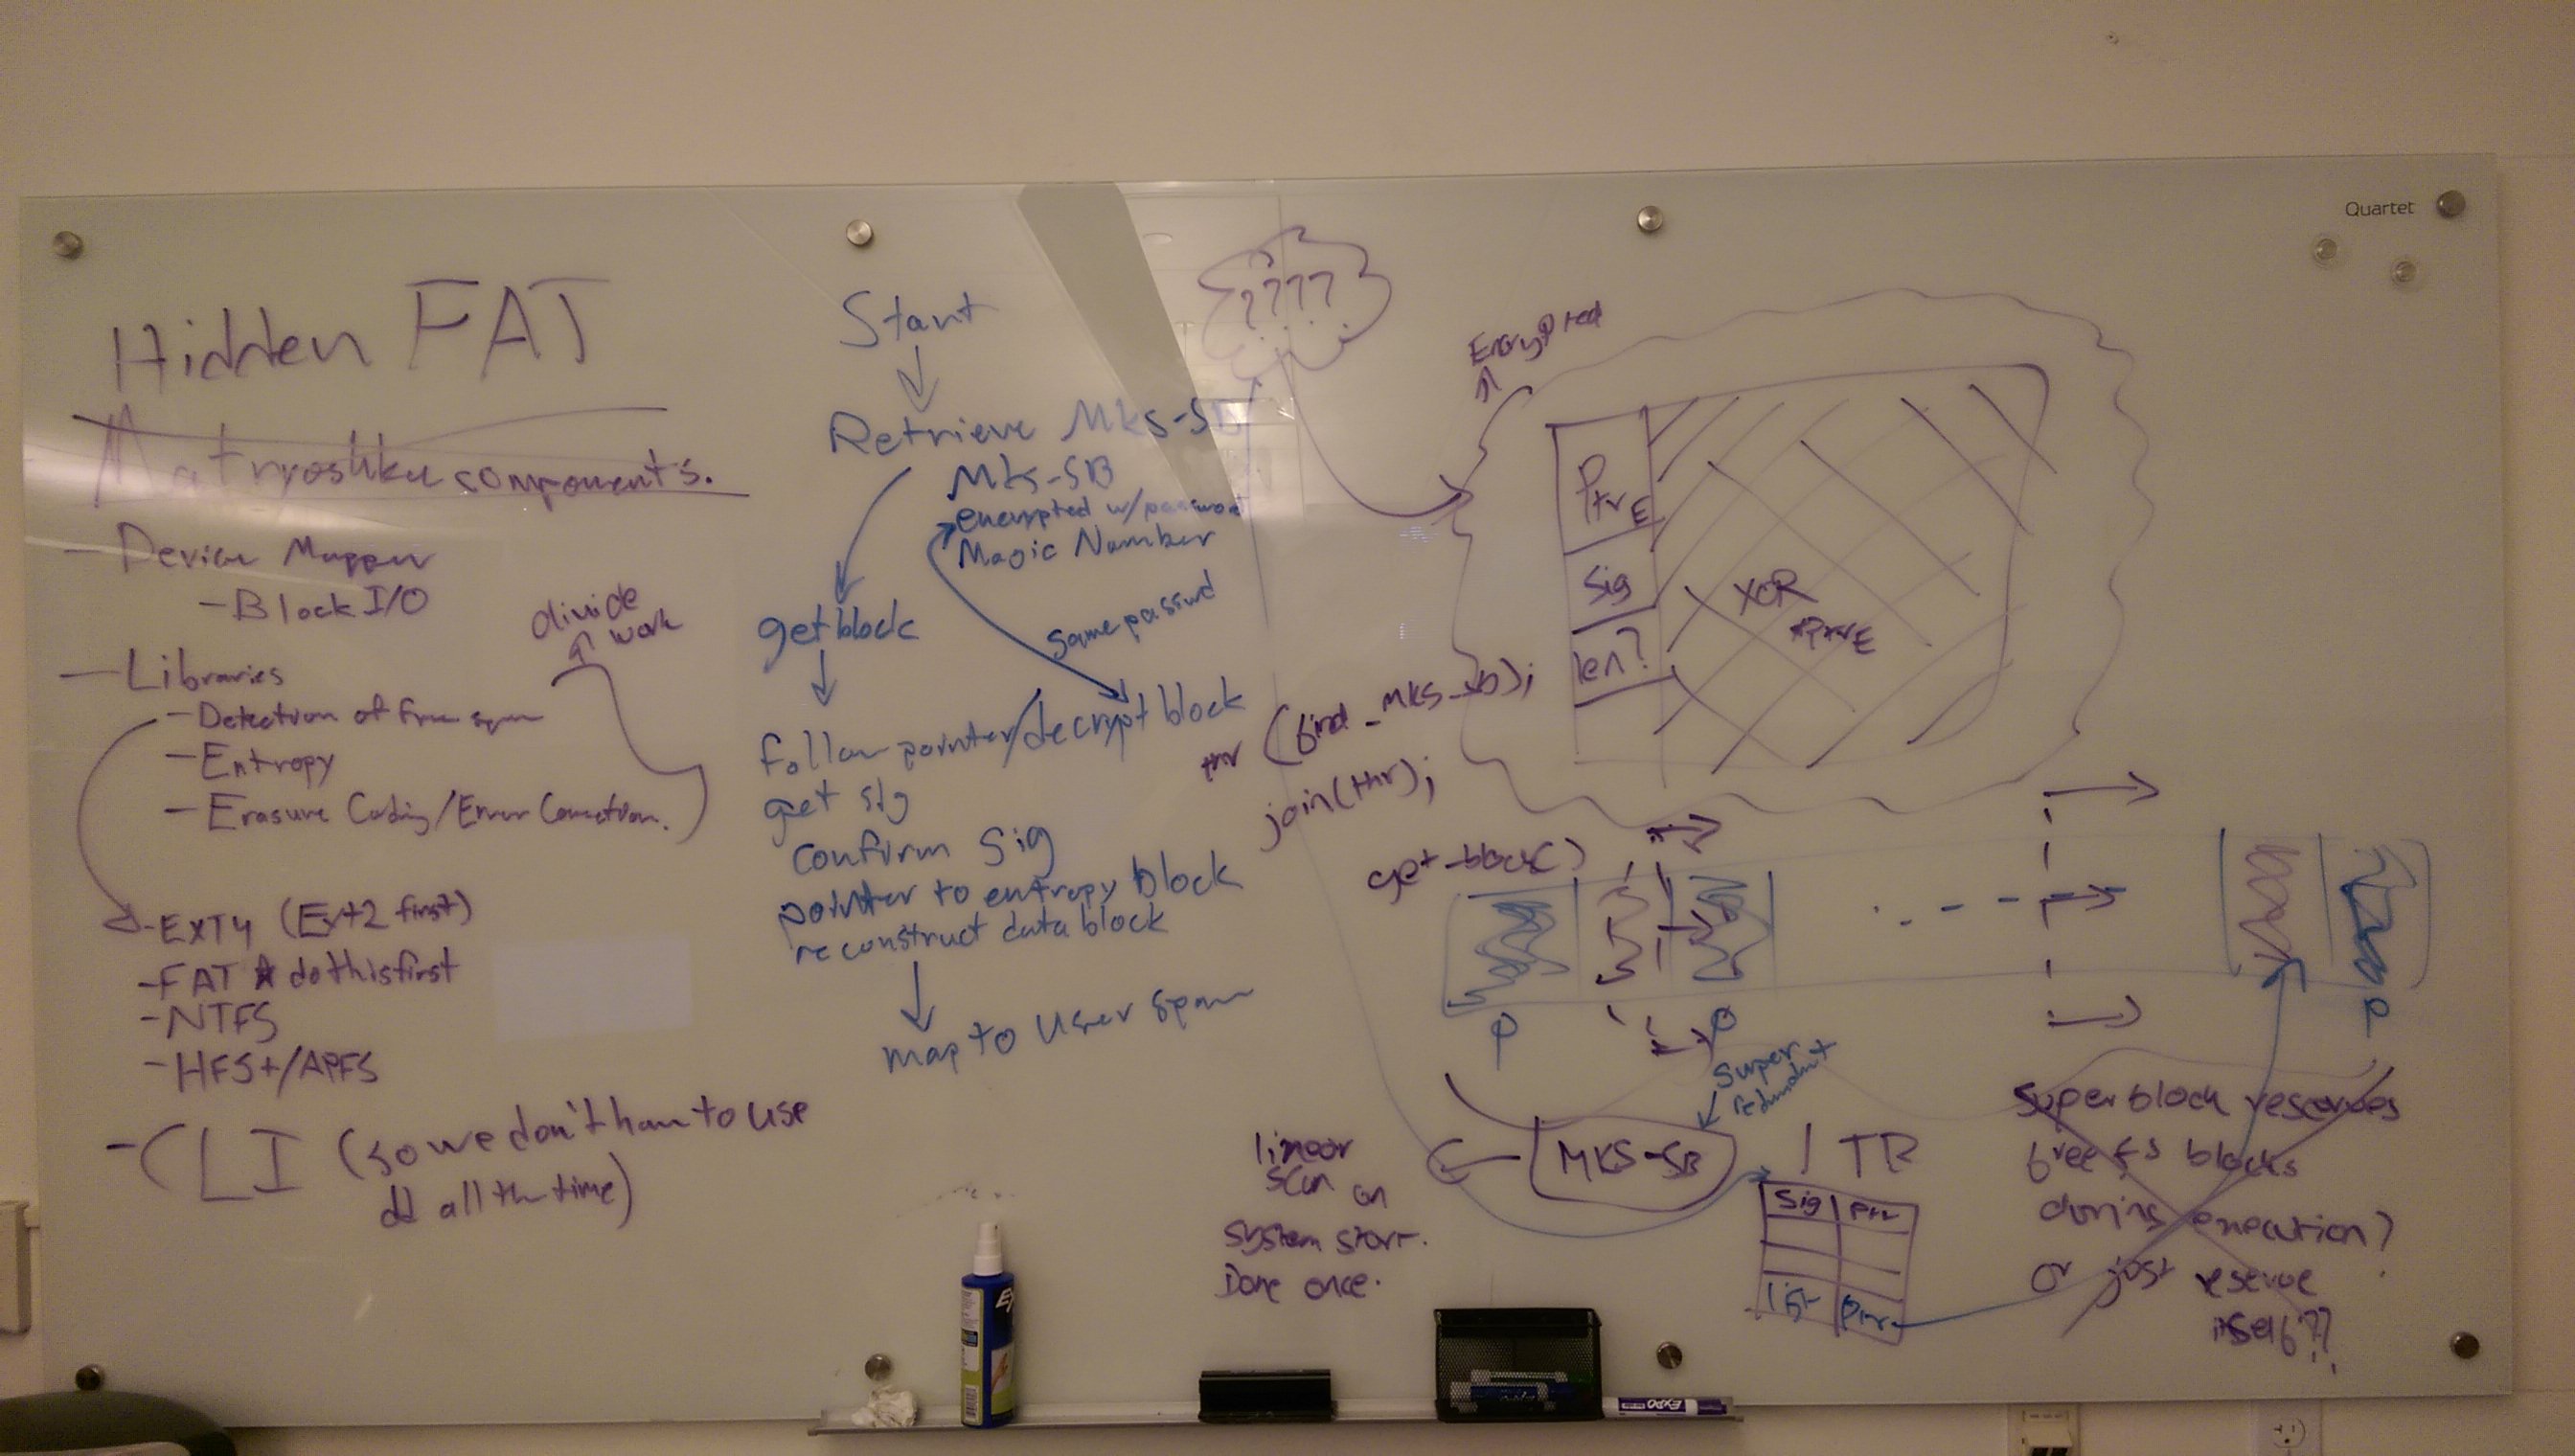 Quartet
Hidden FAT
Matryoshka components.
- Device Mapper
- Block I/O
- Libraries
- Detection of free space
- Entropy
- Erasure Coding/Error Correction.
divide
work
- EXT4 (Ext2 first)
- FAT ★ do this first
- NTFS
- HFS+/APFS
- CLI (so we don't have to use
dd all the time)
Start
Retrieve Mks-SB
Mks-SB
encrypted w/password
Magic Number
same passwd
getblock
follow pointer/decrypt block
get sig
confirm sig
pointer to entropy block
reconstruct data block
map to user space
????
Encrypted
Ptr E
Sig
len?
XOR
Ptr E
thr (find_MKS_sb);
join(thr);
get-block()
P
P
P
Super
redundant
linear
scan on
system start.
Done once.
MKS-SB
Sig ptr
list ptr
Superblock reserves
free fs blocks
during execution?
or just reserve
itself??
EXPO